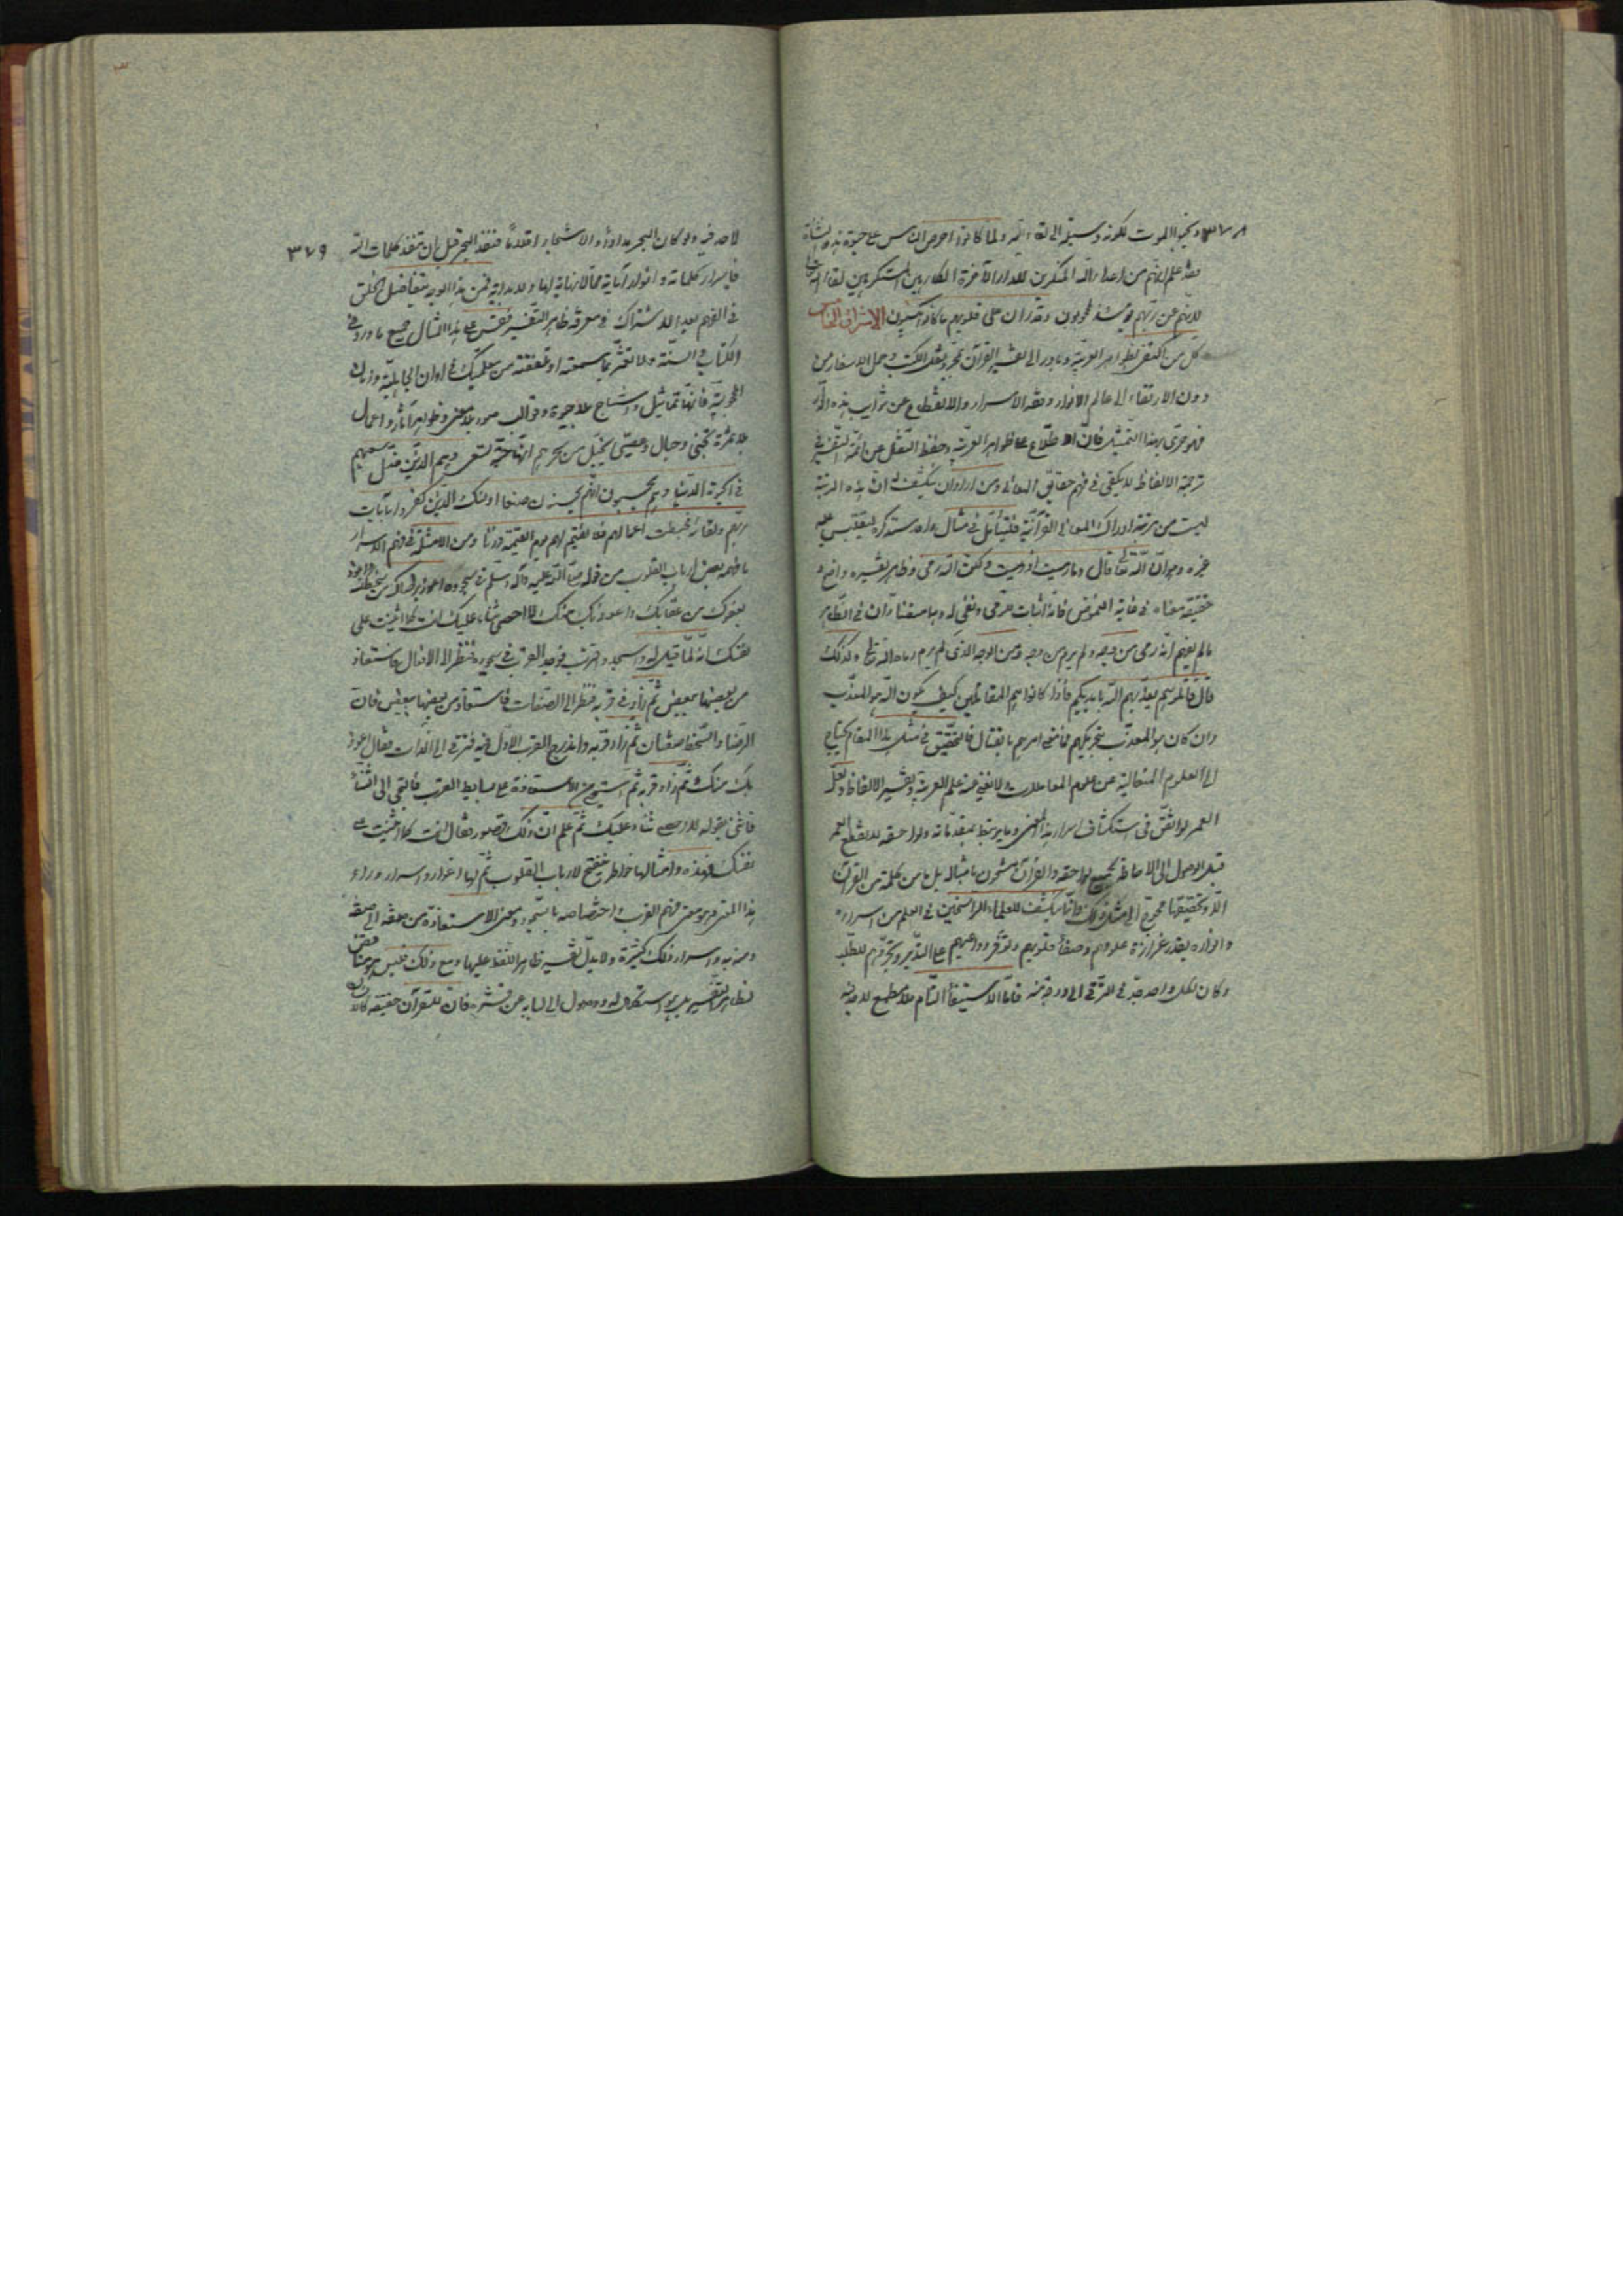 ٣٧٨ وتمنوا الموت لكونه وسيلة الى لقاء الله ولما كانوا احرص الناس على حيوة هذه النشأة
فقد علم انهم من اعداء الله المنكرين للدار الآخرة الكارهين لقاء الله
لانهم عن ربهم يومئذ لمحجوبون وقد ران على قلوبهم ما كانوا يكسبون الاشراق
كل من اكتفى بظواهر العربية وبادر الى تفسير القرآن بمجرد نقل الكتب وحمل الاسفار من
دون الارتقاء الى عالم الانوار وفقه الاسرار والانقطاع عن شوايب هذه الدار
فهو حرى بهذا التمثيل فان الاطلاع على ظواهر العربية وحفظ النقل عن ائمة التفسير في
ترجمة الالفاظ لا يكفى في فهم حقايق المعانى ومن اراد ان ينكشف له ان هذه الرتبة
ليست من مرتبة ادراك المعانى القرآنية فليتأمل في مثال واحد سنذكره ليقيس عليه
غيره وهو ان الله تعالى قال وما رميت اذ رميت ولكن الله رمى وظاهر تفسيره واضح و
حقيقة معناه في غاية الغموض فانه اثبات للرمى ونفى له وهما متضادان في الظاهر
ما لم يفهم انه رمى من وجه ولم يرم من وجه ومن الوجه الذى لم يرم رماه الله تعالى وكذلك
قال قاتلوهم يعذبهم الله بايديكم فاذا كانوا هم المقاتلين كيف يكون الله هو المعذب
وان كان هو المعذب بتحريكهم فما معنى امرهم بالقتال فالتحقيق في مثل هذا المقام يحتاج
الى العلوم المتعالية عن علوم المعاملات ولا يغنى عنه علم العربية وتفسير الالفاظ ولعل
العمر لو انفق في استكشاف اسرار هذا المعنى وما يرتبط بمقدماته ولواحقه لانقطع العمر
قبل الوصول الى الاحاطة بجميع لواحقه والقرآن مشحون بامثاله بل ما من كلمة من القرآن
الا وتحقيقها محوج الى مثل ذلك وانما ينكشف للعلماء الراسخين في العلم من اسراره
وانواره بقدر غزارة علومهم وصفاء قلوبهم وتوفر دواعيهم على التدبر وتجردهم للطلب
وكان لكل واحد حد في الترقى الى درجة منه فاما الاستيفاء التام فلا مطمع لاحد فيه
لاحد فيه ولو كان البحر مدادا والاشجار اقلاما فنفد البحر قبل ان تنفد كلمات الله ٣٧٩
فاسرار كلماته وانوار آياته مما لا نهاية لها ولا بداية فمن هذا الوجه يتفاضل الخلق
في الفهم بعد الاشتراك في معرفة ظاهر التفسير فقس على هذا المثال جميع ما ورد في
الكتاب والسنة ولا تغتر بما سمعته او تلقفته من معلميك في اوان الجاهلية وزمان
المحجوبية فانها تماثيل واشباح بلا حيوة وقوالب صور بلا معنى وظواهر آثار واعمال
بلا ثمرة تجتنى وحبال وعصى يخيل من سحرهم انها حية تسعى وهم الذين ضل سعيهم
في الحيوة الدنيا وهم يحسبون انهم يحسنون صنعا اولئك الذين كفروا بآيات
ربهم ولقائه فحبطت اعمالهم فلا نقيم لهم يوم القيمة وزنا ومن الامثلة في فهم الاسرار
ما فهمه بعض ارباب القلوب من قوله صلى الله عليه وآله وسلم في سجوده اعوذ برضاك من سخطك واعوذ
بعفوك من عقابك واعوذ بك منك لا احصى ثناء عليك انت كما اثنيت على
نفسك انه لما قيل له واسجد واقترب فوجد القرب في سجوده فنظر الى الافعال فاستعاذ
من بعضها ببعض ثم زاد في قربه فنظر الى الصفات فاستعاذ من بعضها ببعض فان
الرضا والسخط صفتان ثم زاد قربه واندرج القرب الاول فيه فترقى الى الذات فقال اعوذ
بك منك ثم زاد قربه ثم استحيى من الاستعاذة على بساط القرب فالتجى الى الثناء
فاثنى بقوله لا احصى ثناء عليك ثم علم ان ذلك قصور فقال انت كما اثنيت على
نفسك فهذه وامثالها خواطر تنفتح لارباب القلوب ثم لها اغوار واسرار وراء
هذا المعنى وهو معنى فهم القرب واختصاصه بالسجود ومعنى الاستعاذة من صفة الى صفة
ومنه به واسرار ذلك كثيرة ولا يدل تفسير ظاهر اللفظ عليها ومع ذلك فليس هو مناقض
لظاهر التفسير بل هو استكمال له ووصول الى لبابه عن قشره فان للقرآن حقيقة كالانسان